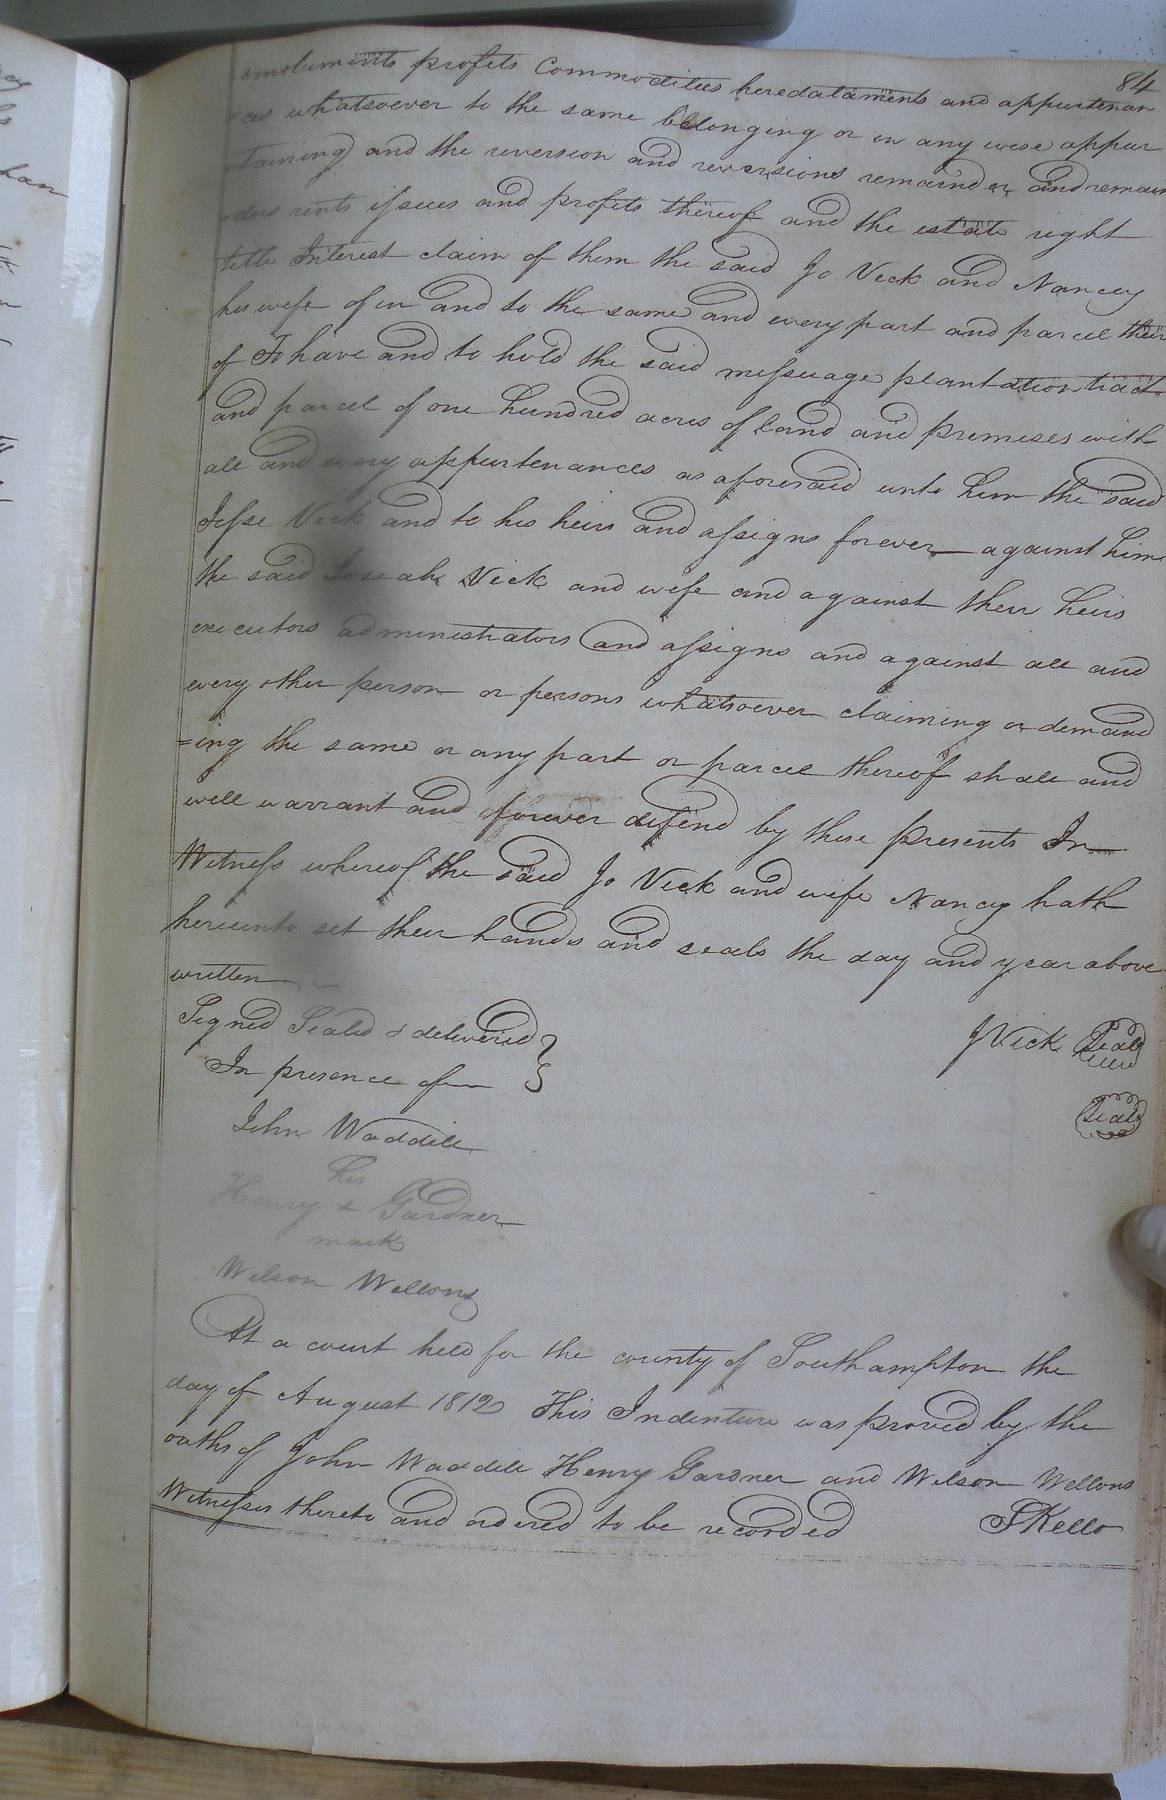 84
emoluments profits Commodities heredataments and appurtenan
=ces whatsoever to the same belonging or in any wise appur
=taining and the reversion and reversions remainder and remain
=ders rents issues and profits thereof and the estate right
title Interest claim of them the said Jo Vick and Nancey
his wife of in and to the same and every part and parcel their
of To have and to hold the said messuage plantation tract
and parcel of one hundred acres of land and premises with
all and every appurtenances as aforesaid unto him the said
Jesse Vick and to his heirs and assigns forever against him
the said Josiah Vick and wife and against their heirs
executors administrators and assigns and against all and
every other person or persons whatsoever claiming or demand
=ing the same or any part or parcel thereof shall and
will warrant and forever defend by these presents In
Witness whereof the said Jo Vick and wife Nancy hath
hereunto set their hands and seals the day and year above
written
Signed Sealed & delivered } J Vick Seal
In presence of Seal
John Waddill
his
Henry + Gardner
mark
Wilson Wellons
At a court held for the county of Southampton the
day of August 1812 This Indenture was proved by the
oaths of John Waddill Henry Gardner and Wilson Wellons
Witnesses thereto and ordered to be recorded SKello